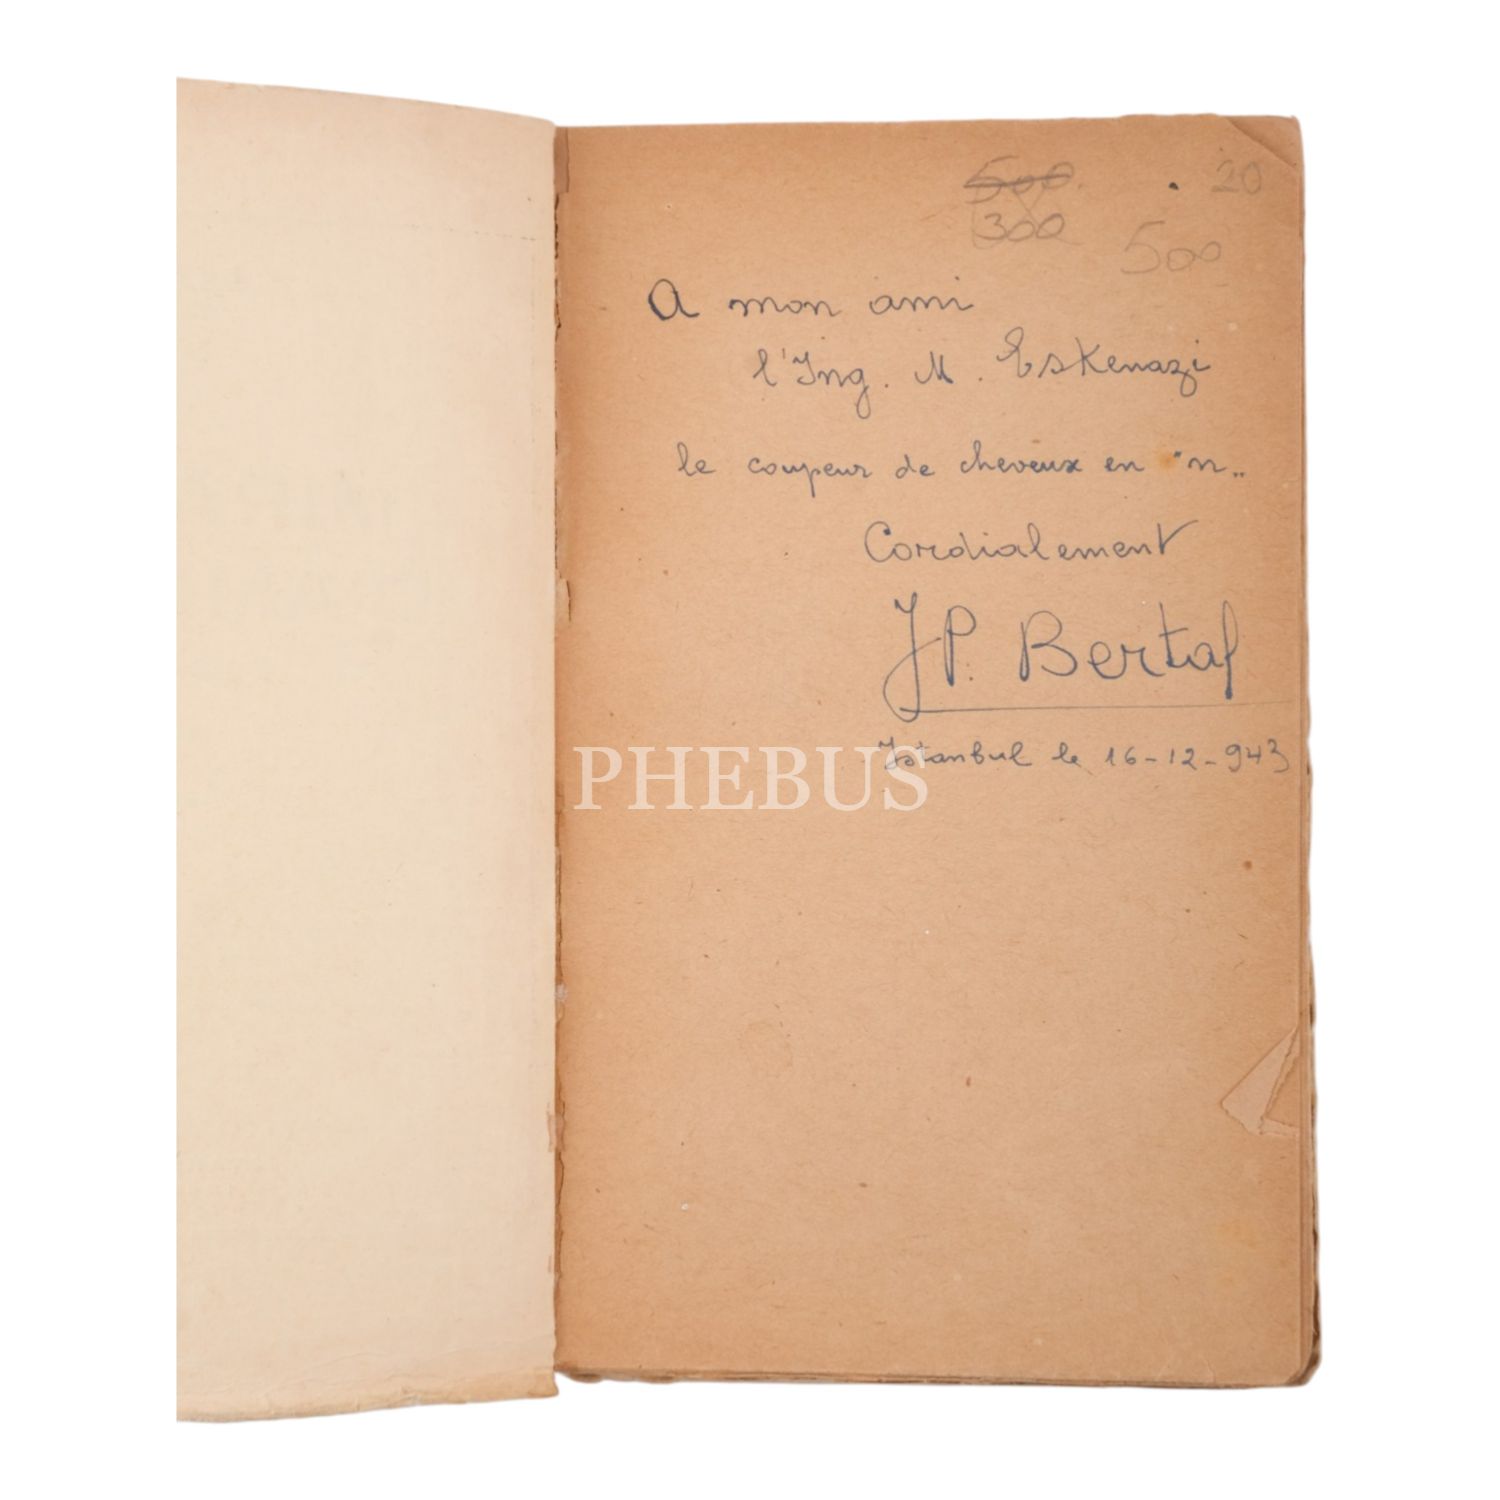 500
20
300
500
A mon ami
l'Ing. M. Eskenazi
le coupeur de cheveux en "n„
Cordialement
JP. Bertal
Istanbul le 16-12-943
PHEBUS